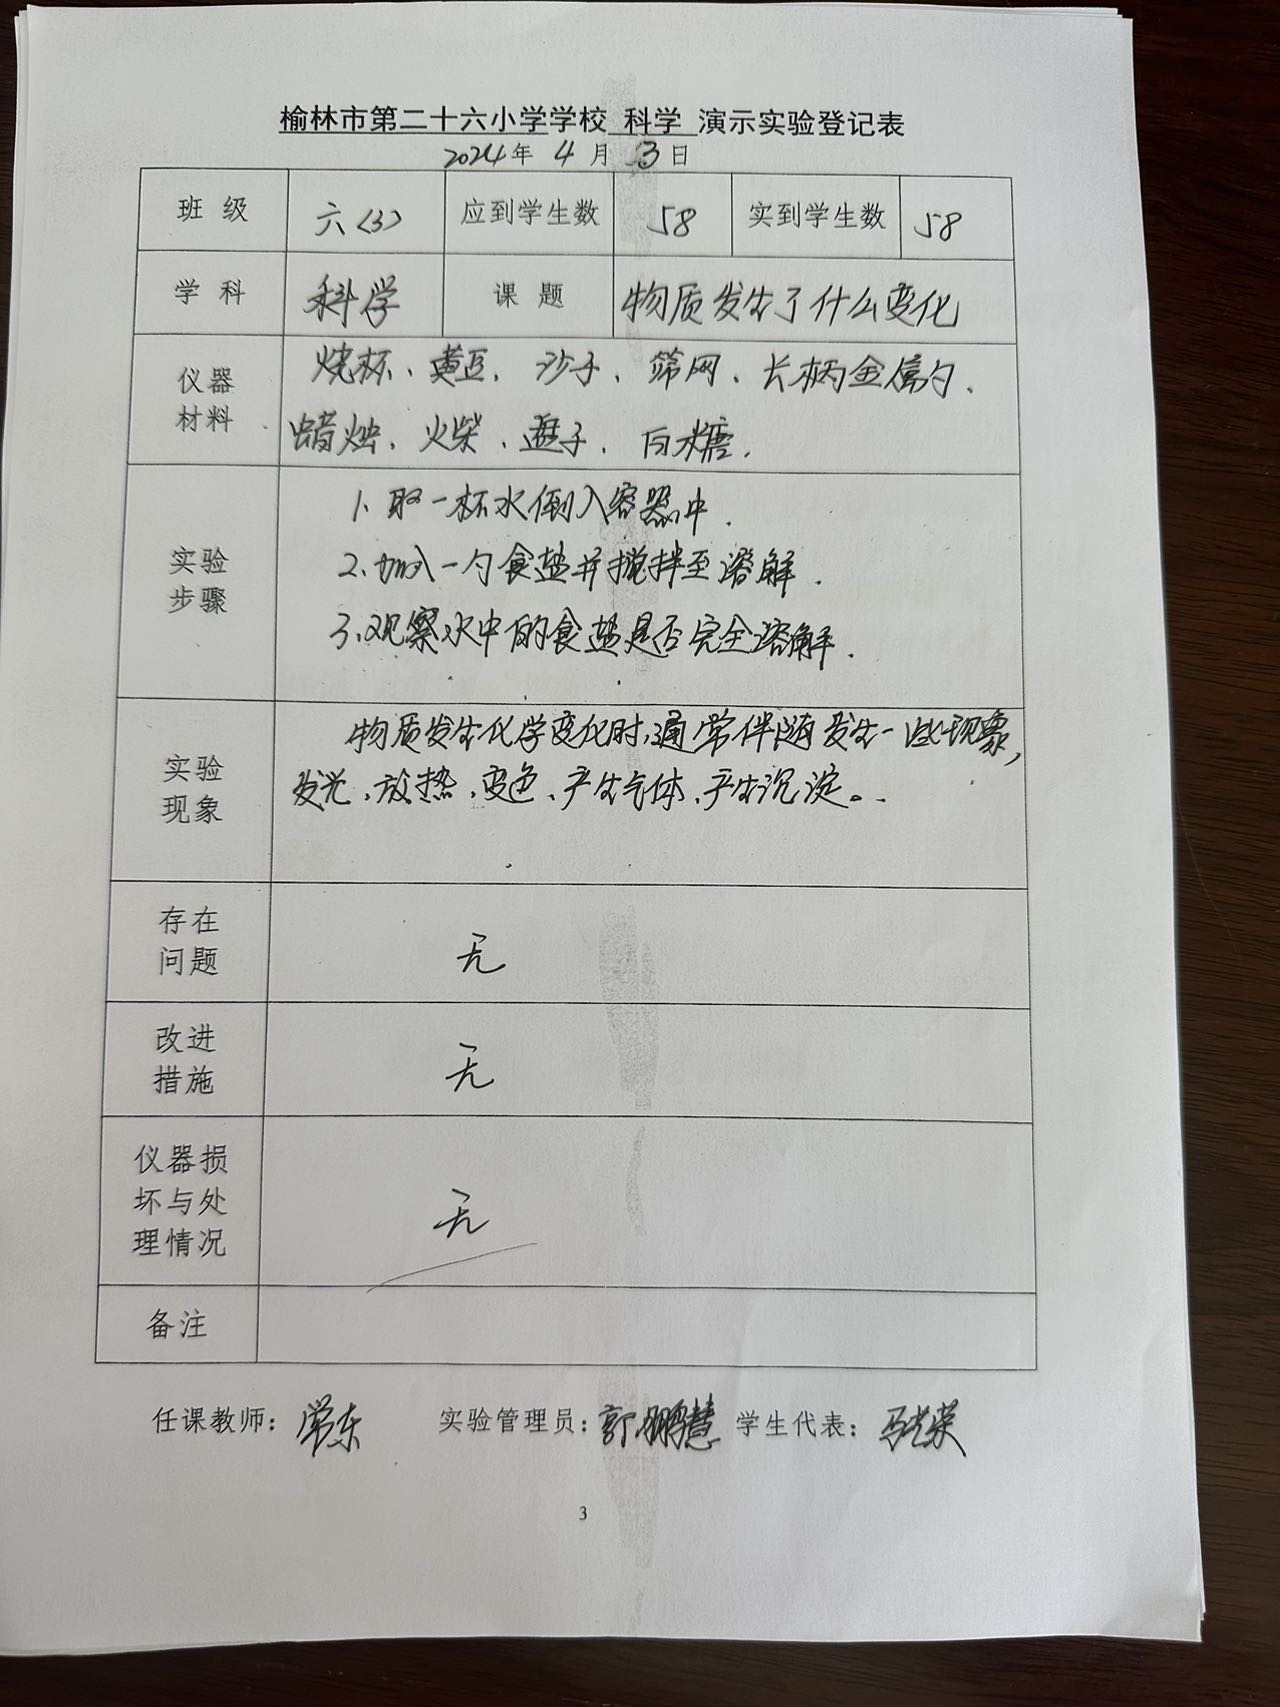 榆林市第二十六小学学校 科学 演示实验登记表
2024年 4 月 3 日
班 级 六(3) 应到学生数 58 实到学生数 58
学 科 科学 课 题 物质发生了什么变化
仪器
材料
烧杯、黄豆、沙子、筛网、长柄金属勺、
蜡烛、火柴、 子、白糖.
实验
步骤
1.取一杯水倒入容器中.
2.加入一勺食盐并搅拌至溶解.
3.观察水中的食盐是否完全溶解.
实验
现象
物质发生化学变化时,通常伴随发生一些现象,
发光、放热、变色、产生气体、产生沉淀。
存在
问题
无
改进
措施
无
仪器损
坏与处
理情况
无
备注
任课教师: 常东 实验管理员: 郭鹏慧 学生代表:
3